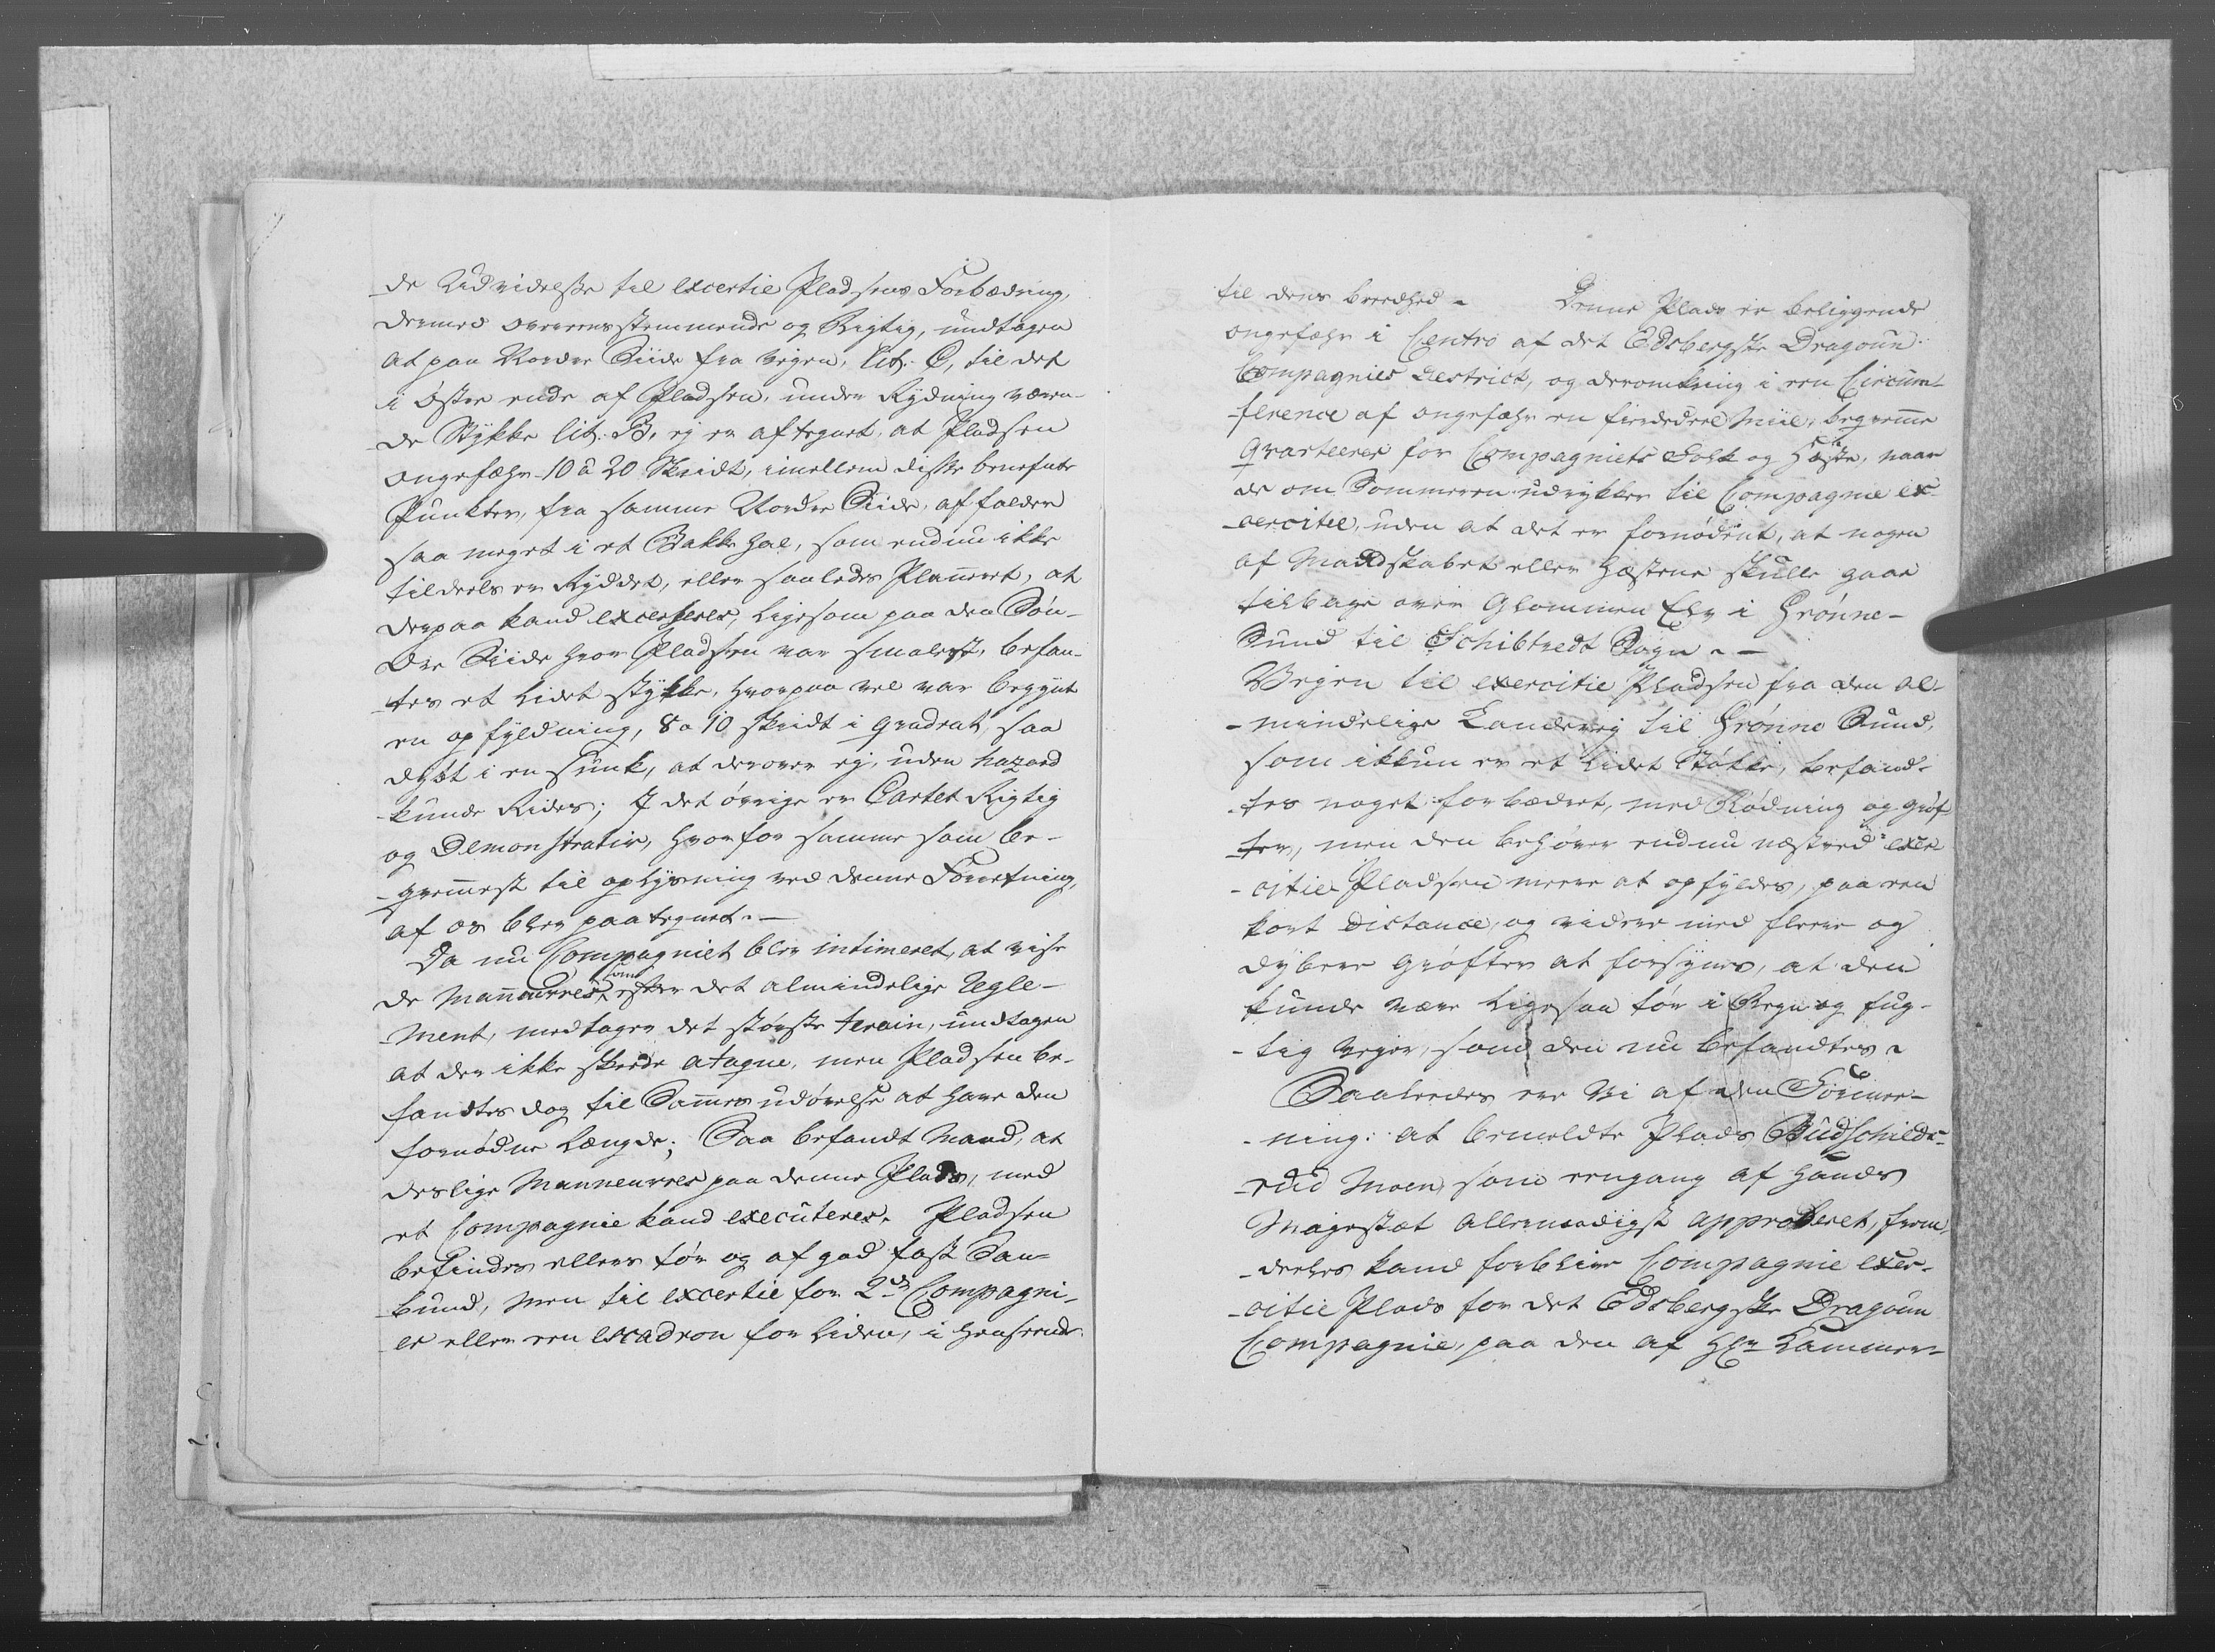 de Udvidelsse til excertie Pladsens Forbædring,
dermed overeensstemmende og Rigtig, undtagen
at paa Norder Siide fra vejen, lit. C, til det
i Øster ende af Pladsen, under Rydning væren-
de Stykke lit. B, ej er aftegnet, at Pladsen
ongefæhr 10 à 20 Skridt, imellem disse benefnte
Punkter, fra samme Norder Siide, affalder
saa meget i et Bakke Hæl, som endnu ikke
tildeels er Ryddet, eller saaledes Planneret, at
derpaa kand excerseres, ligesom paa den Søn-
dre Siide hvor Pladsen var smalest, befan-
tes et lidet stykke, hvorpaa vel var begynt
en opfyldning, 8 a 10 skridt i quadrat, saa
dybt i en sunk, at derover ej, uden hazard
kunde Rides; I det øvrige er Cartet Rigtig
og Demonstrativ, hvorfor samme som be-
qvemmest til oplysning ved denne Forretning,
af os blev paategnet.—
Da nu Compagniet blev intimeret, at vise
de Manneuvres, som efter det almindelige Regle-
ment, medtager det største terain, undtagen
at der ikke skeede ataque, men Pladsen be-
fandtes dog til Sammes udøvelse at have den
fornødne Længde; Saa befandt Mand, at
deslige Manneuvres paa denne Plads, med
et Compagnie kand executeres. Pladsen
befindes ellers tør og af god fast San-
bund, Men til excertie for 2de Compagni-
er eller een escadron for liden, i henseende
til dens breedhed - Denne Plads er beliggende
ongefæhr i Centro af det Edsbergske Dragoun
Compagnies Destrict, og deromkring i een Circum-
ference af ongefæhr en fierdedeel Miil, beqvemme
Qvarteerer for Compagniets Folk og Hæste, naar
de om Sommeren udrykker til Compagnie ex-
cercitie, uden at det er fornødent, at nogen
af Mandskabet eller Hæstene skulle gaae
tilbage over Glommen Elv i Grønne-
Sund til Schibtvedt Sogn.—
Vejen til exercitie Pladsen fra den al-
mindelige Landevej til Grønne Sund,
som ikkun er et Lidet Støkke, befand-
tes noget forbædret, med Rødning og grøf-
ter, men den behøver endnu næstved exer-
citie Pladsen meere at opfyldes, paa een
kort Distance, og videre med fleere og
dybere Grøfter at forsynes, at den
kunde være ligesaa tør i Regn og fug-
tig Vejer, som den nu befandtes.
Saaledes ere Vi af den Formee-
ning: at bemeldte Plads Budschilds-
rud Moen, som eengang af Hands
Majestæt Allernaadigst approberet, frem-
deeles kand forblive Compagnie exer-
citie Plads for det Edsbergske Dragoun
Compagnie, paa den af Hr. Kammer-